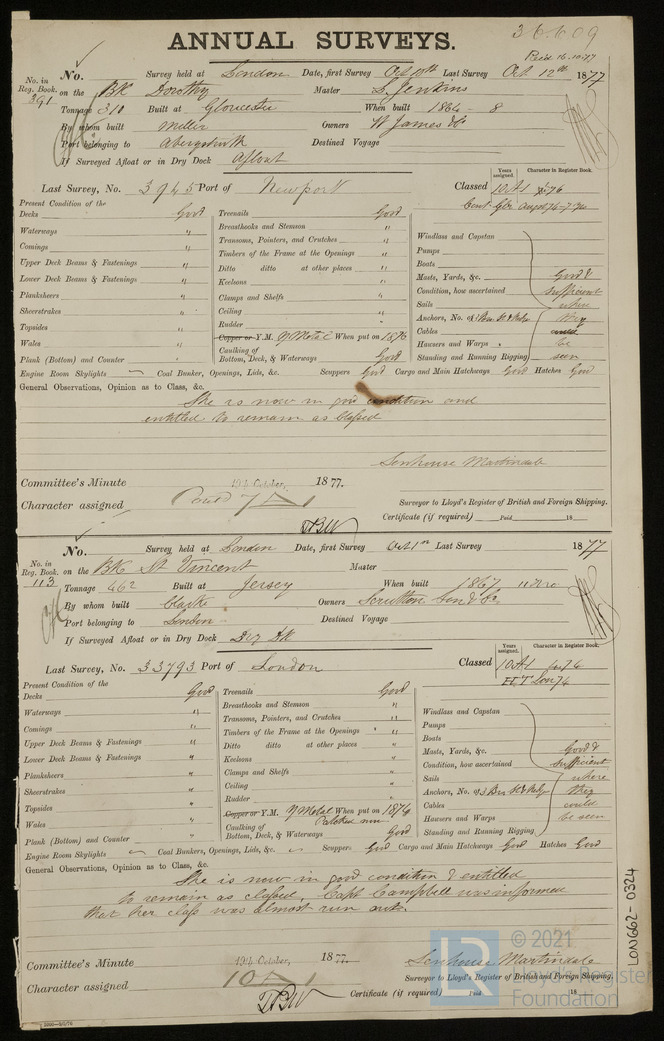 36609
ANNUAL SURVEYS.
Recd 16.10.77
No. in Reg. Book. 391
No. Survey held at London Date, first Survey Oct 10th Last Survey Oct 12th 1877
on the BK Dorothy Master D. Jenkins
Tonnage 310 Built at Gloucester When built 1864 - 8
By whom built Miller Owners W James & Co
Port belonging to Aberystwith Destined Voyage
If Surveyed Afloat or in Dry Dock Afloat
Years assigned. Character in Register Book.
Last Survey, No. 3945 Port of Newport Classed 10A1 76
Present Condition of the
Decks Good
Waterways "
Comings "
Upper Deck Beams & Fastenings "
Lower Deck Beams & Fastenings "
Planksheers "
Sheerstrakes "
Topsides "
Wales "
Plank (Bottom) and Counter "
Treenails Good
Breasthooks and Stemson "
Transoms, Pointers, and Crutches "
Timbers of the Frame at the Openings "
Ditto ditto at other places "
Keelsons "
Clamps and Shelfs "
Ceiling "
Rudder "
Copper or Y.M. Y Metal When put on 1876
Caulking of Bottom, Deck, & Waterways Good
Windlass and Capstan
Pumps
Boats
Masts, Yards, &c. Good &
Condition, how ascertained sufficient
Sails where
Anchors, No. of they
Cables could
Hawsers and Warps be
Standing and Running Rigging seen
Engine Room Skylights Coal Bunker, Openings, Lids, &c. Scuppers Good Cargo and Main Hatchways Good Hatches Good
General Observations, Opinion as to Class, &c.
She is now in good condition and
entitled to remain as Classed
Senhouse Martindale
Committee's Minute 19th October, 1877.
Character assigned
Surveyor to Lloyd's Register of British and Foreign Shipping.
Certificate (if required) Paid 18
No. in Reg. Book. 113
No. Survey held at London Date, first Survey Oct 1st Last Survey 1877
on the BK St Vincent Master
Tonnage 462 Built at Jersey When built 1867
By whom built Clarke Owners Scrutton Son & Co
Port belonging to London Destined Voyage
If Surveyed Afloat or in Dry Dock Dry Dk
Years assigned. Character in Register Book.
Last Survey, No. 33793 Port of London Classed 10A1 6.76
Present Condition of the
Decks Good
Waterways "
Comings "
Upper Deck Beams & Fastenings "
Lower Deck Beams & Fastenings "
Planksheers "
Sheerstrakes "
Topsides "
Wales "
Plank (Bottom) and Counter "
Treenails Good
Breasthooks and Stemson "
Transoms, Pointers, and Crutches "
Timbers of the Frame at the Openings "
Ditto ditto at other places "
Keelsons "
Clamps and Shelfs "
Ceiling "
Rudder "
Copper or Y.M. Y Metal When put on 1876
Caulking of Bottom, Deck, & Waterways Good
Windlass and Capstan
Pumps
Boats
Masts, Yards, &c. Good &
Condition, how ascertained sufficient
Sails where
Anchors, No. of they
Cables could
Hawsers and Warps be seen
Standing and Running Rigging
Engine Room Skylights Coal Bunkers, Openings, Lids, &c. Scuppers Good Cargo and Main Hatchways Good Hatches Good
General Observations, Opinion as to Class, &c.
She is now in good condition & entitled
to remain as classed, Capt Campbell was informed
that her class was almost run out.
Committee's Minute 19th October, 1877.
Senhouse Martindale
Character assigned 10A1
Surveyor to Lloyd's Register of British and Foreign Shipping.
Certificate (if required) Paid 18
LON662-0324
© 2021
LR
Lloyd's Register
Foundation